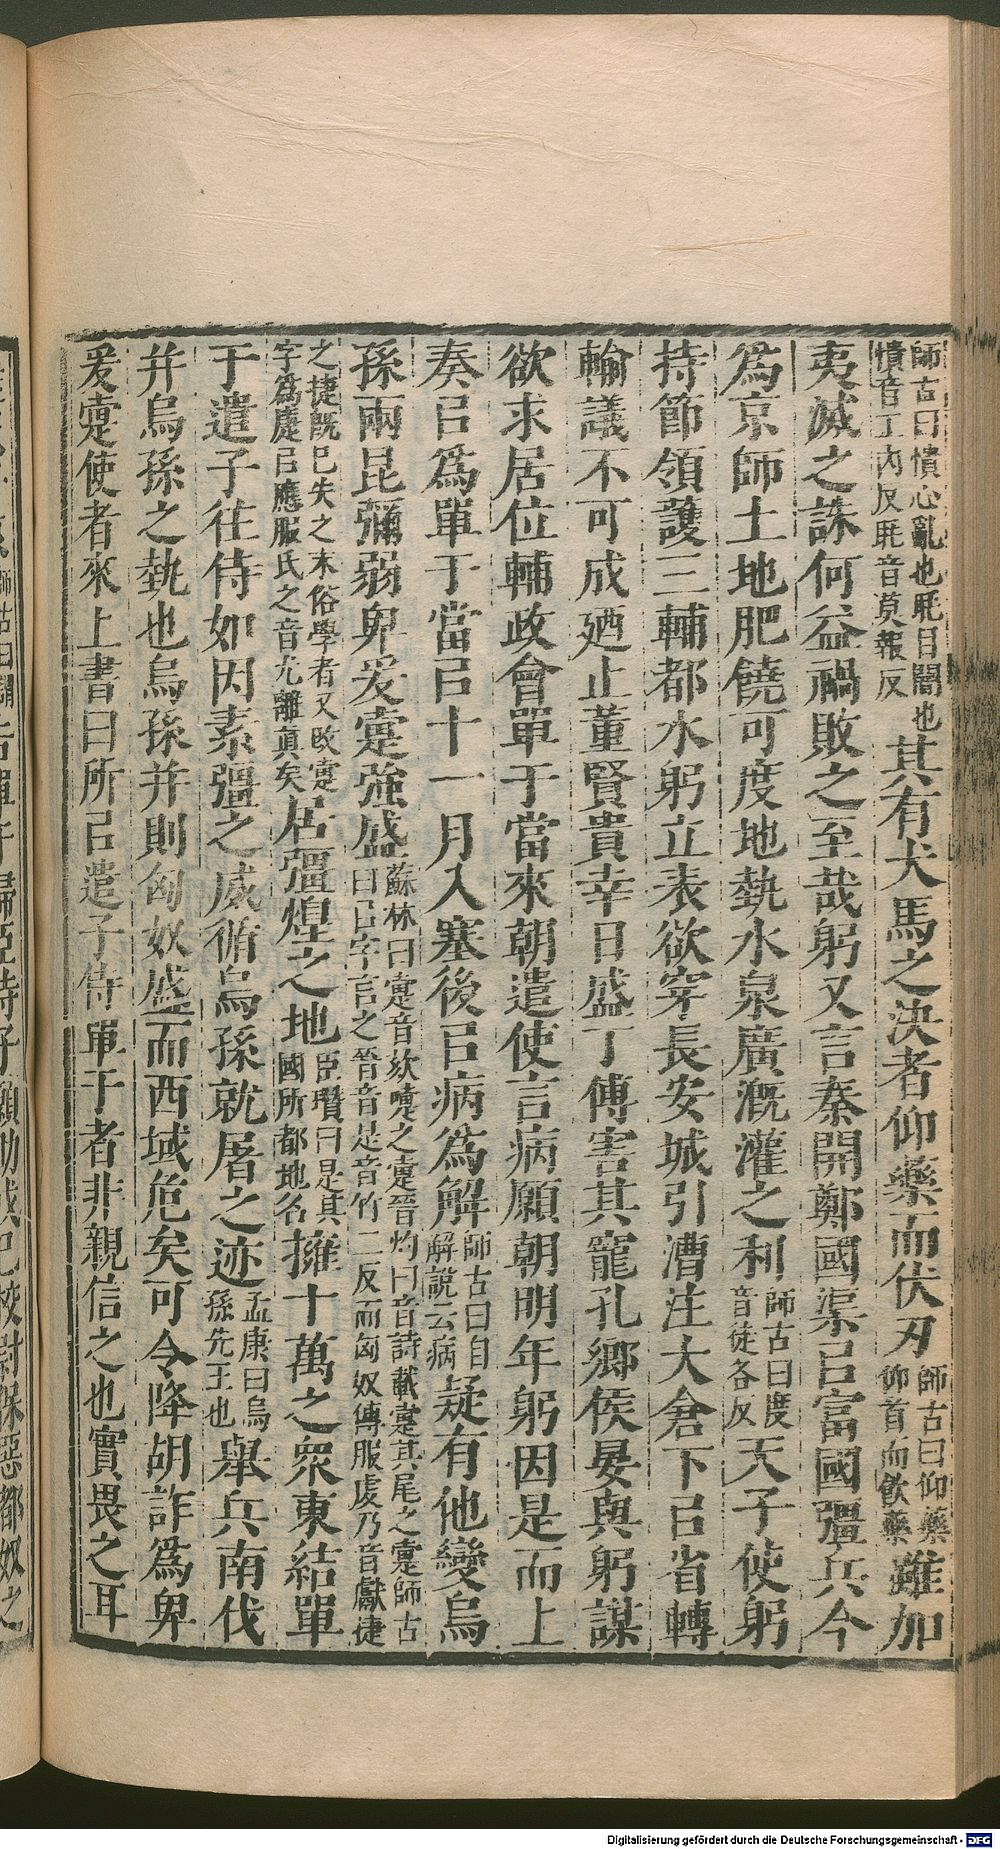 師古曰憒心亂也眊目闇也
憒音工內反眊音莫報反
其有犬馬之決者仰藥而伏刃
師古曰仰藥
仰首而飲藥
雖加
夷滅之誅何益禍敗之至哉躬又言秦開鄭國渠㠯富國彊兵今
爲京師土地肥饒可度地埶水泉廣溉灌之利
師古曰度
音徒各反
天子使躬
持節領護三輔都水躬立表欲穿長安城引漕注大倉下㠯省轉
輸議不可成迺止董賢貴幸日盛丁傅害其寵孔鄉侯晏與躬謀
欲求居位輔政會單于當來朝遣使言病願朝明年躬因是而上
奏㠯爲單于當㠯十一月入塞後㠯病爲解
師古曰自
解說云病
疑有他變烏
孫兩昆彌弱卑爰疐強盛
蘇林曰疐音欬嚏之疐晉灼曰音詩載疐其尾之疐師古
曰㠯字言之晉音是音竹二反而匈奴傳服虔乃音獻捷
之捷既已失之末俗學者又改疐
字爲疌㠯應服氏之音尤離真矣
居彊煌之地
臣瓚曰是其
國所都地名
擁十萬之眾東結單
于遣子往侍如因素彊之威循烏孫就屠之迹
孟康曰烏
孫先王也
舉兵南伐
并烏孫之埶也烏孫并則匈奴盛而西域危矣可令降胡詐爲卑
爰疐使者來上書曰所㠯遣子侍單于者非親信之也實畏之耳
Digitalisierung gefördert durch die Deutsche Forschungsgemeinschaft - DFG